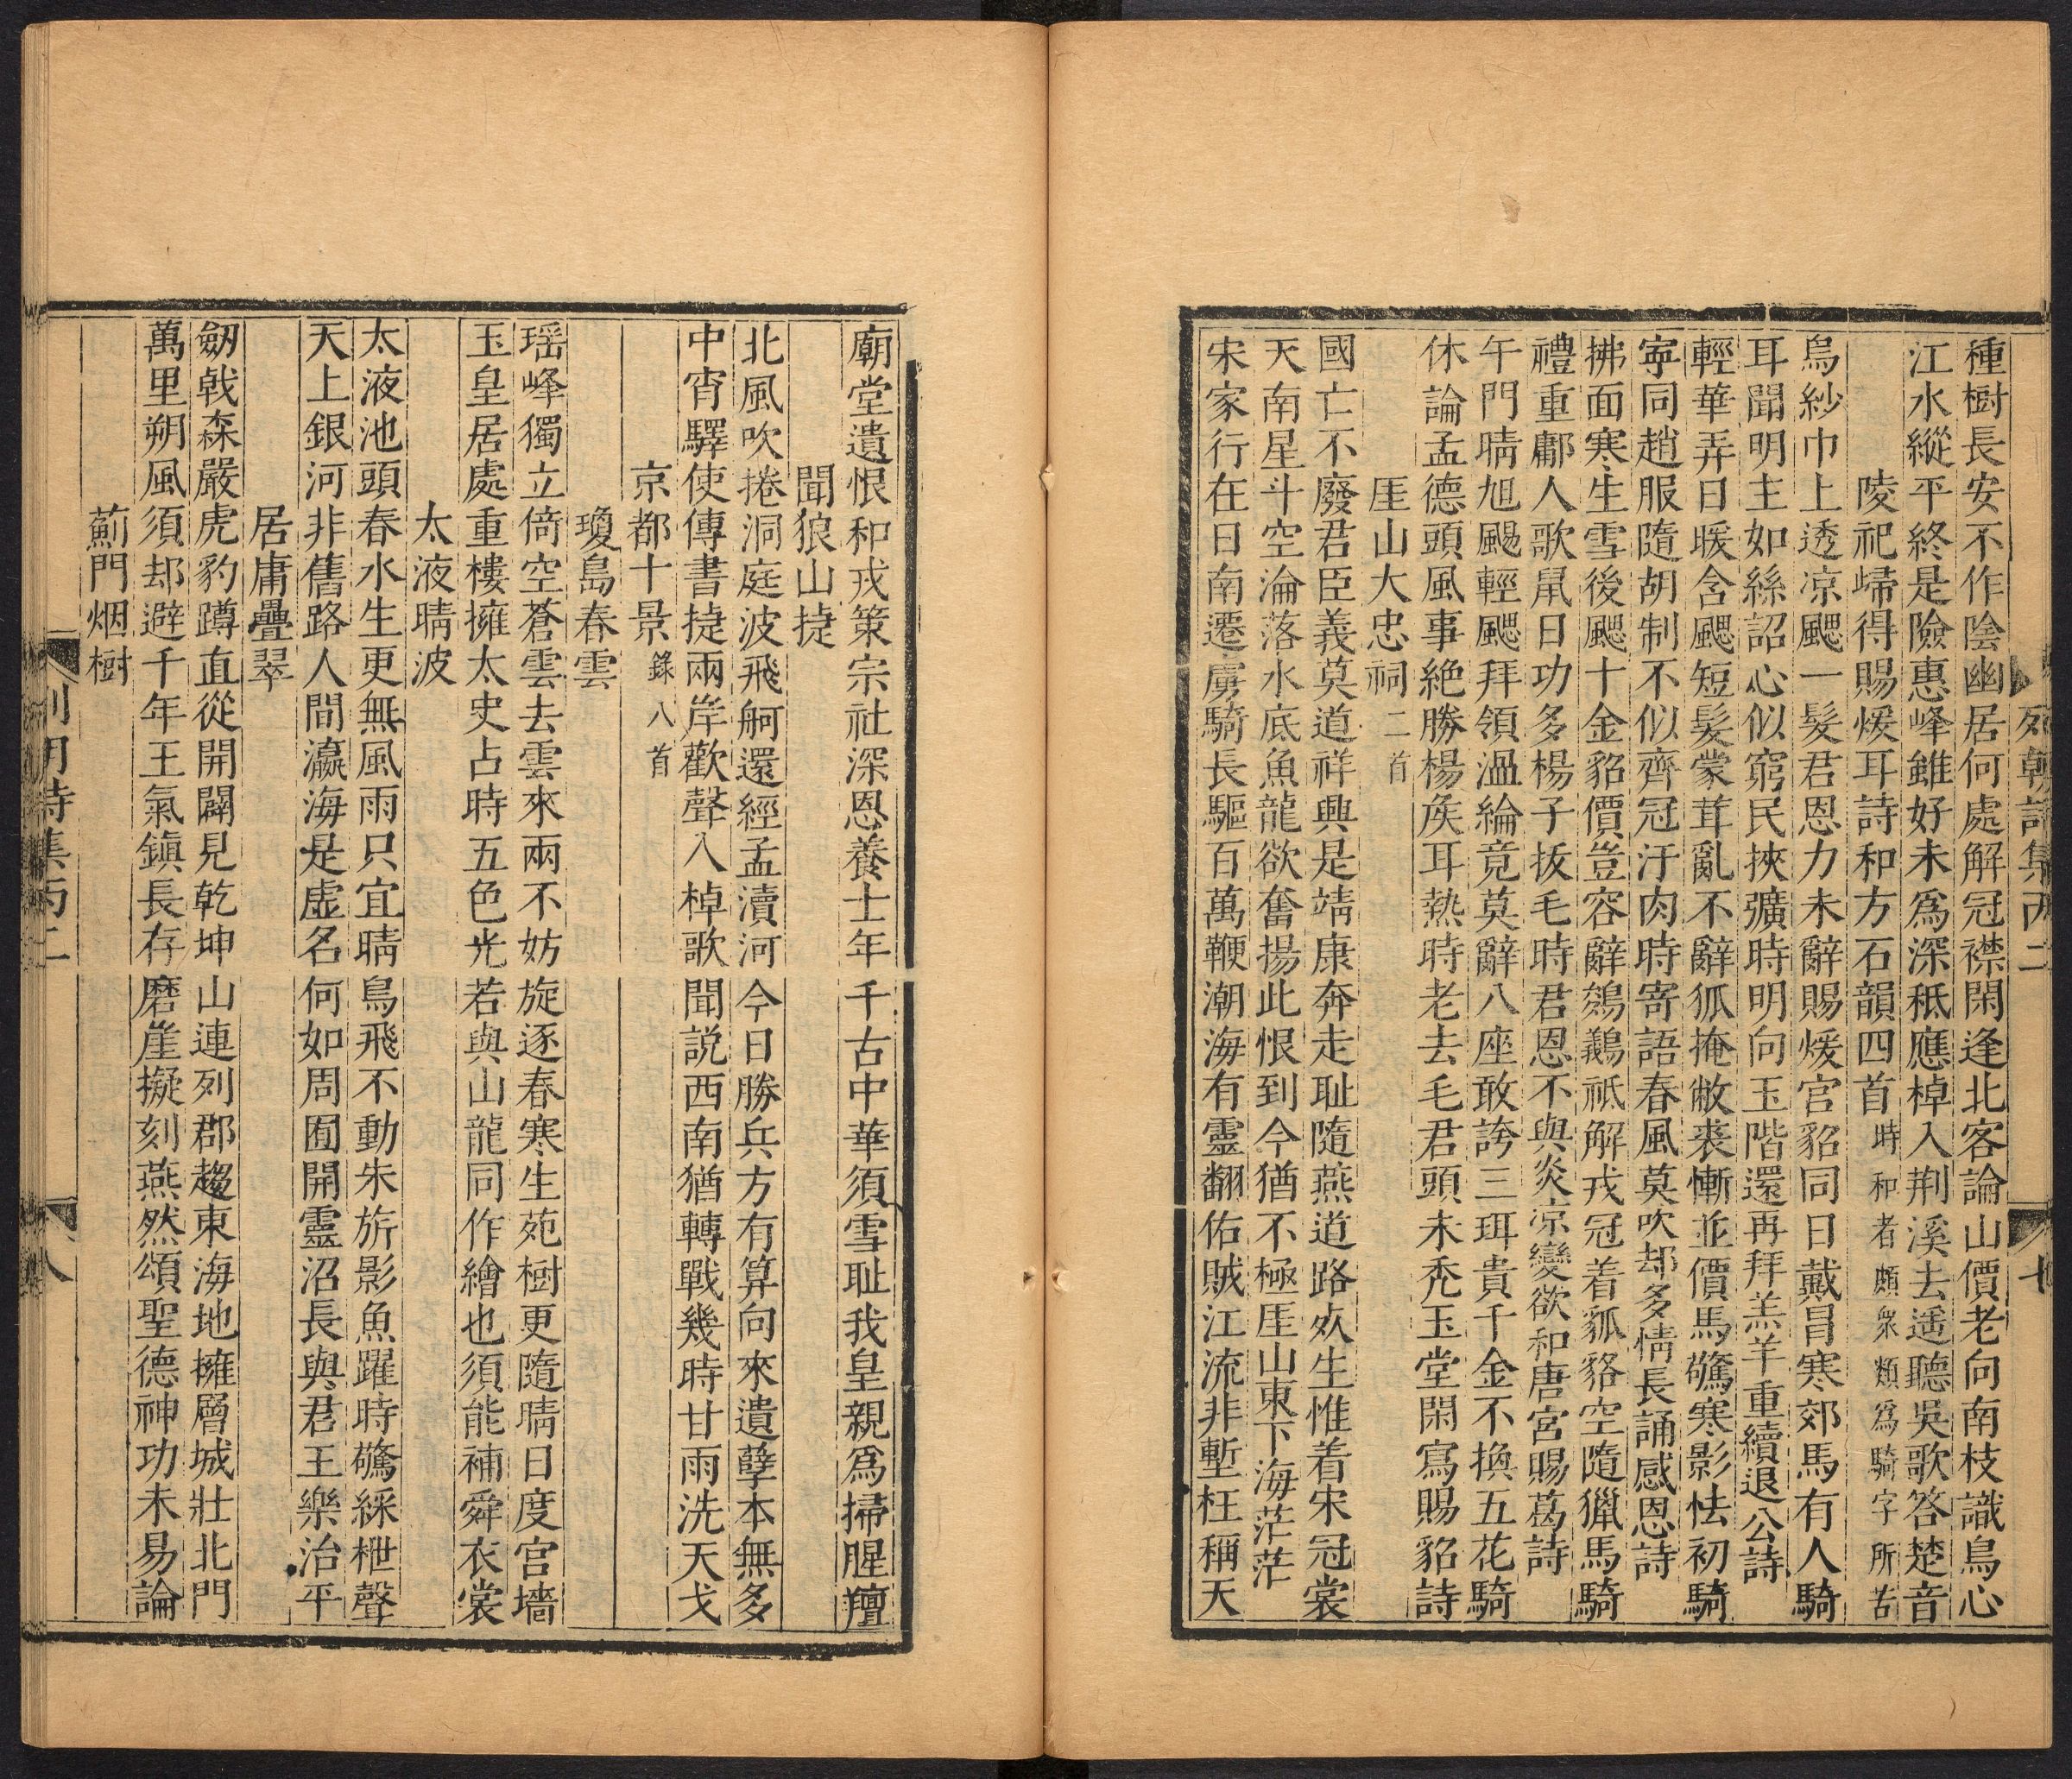 列朝詩集丙二
七
種樹長安不作陰幽居何處解冠襟閑逢北客論山價老向南枝識鳥心
江水縱平終是險惠峰雖好未爲深秪應棹入荆溪去遥聽吳歌答楚音
陵祀歸得賜煖耳詩和方石韻四首時和者頗衆類爲騎字所苦
烏紗巾上透凉颸一髮君恩力未辭賜煖宫貂同日戴冐寒郊馬有人騎
耳聞明主如絲詔心似窮民挾纊時明向玉階還再拜羔羊重續退公詩
輕華弄日暖含颸短髪蒙茸亂不辭狐掩敝裘慚並價馬驚寒影怯初騎
寜同趙服隨胡制不似齊冠汙肉時寄語春風莫吹却多情長誦感恩詩
拂面寒生雪後颸十金貂價豈容辭鵕鸃秪解戎冠着狐貉空隨獵馬騎
禮重鄘人歌鼠日功多楊子拔毛時君恩不與炎凉變欲和唐宫賜葛詩
午門晴旭颺輕颸拜領温綸竟莫辭八座敢誇三珥貴千金不換五花騎
休論孟德頭風事絶勝楊矦耳熱時老去毛君頭未秃玉堂閑寫賜貂詩
厓山大忠祠二首
國亡不廢君臣義莫道祥興是靖康奔走耻隨燕道路死生惟着宋冠裳
天南星斗空淪落水底魚龍欲奮揚此恨到今猶不極厓山東下海茫茫
宋家行在日南遷虜騎長驅百萬鞭潮海有靈翻佑賊江流非塹枉稱天
廟堂遺恨和戎策宗社深恩養士年千古中華須雪耻我皇親爲掃腥羶
聞狼山捷
北風吹捲洞庭波飛舸還經孟瀆河今日勝兵方有算向來遺孽本無多
中宵驛使傳書捷兩岸歡聲入棹歌聞説西南猶轉戰幾時甘雨洗天戈
京都十景錄八首
瓊島春雲
瑶峰獨立倚空蒼雲去雲來兩不妨旋逐春寒生苑樹更隨晴日度宫墻
玉皇居處重樓擁太史占時五色光若與山龍同作繪也須能補舜衣裳
太液晴波
太液池頭春水生更無風雨只宜晴鳥飛不動朱旂影魚躍時驚綵枻聲
天上銀河非舊路人間瀛海是虛名何如周囿開靈沼長與君王樂治平
居庸疊翠
劒戟森嚴虎豹蹲直從開闢見乾坤山連列郡趨東海地擁層城壯北門
萬里朔風須却避千年王氣鎭長存磨崖擬刻燕然頌聖德神功未易論
薊門烟樹
列朝詩集丙二
八